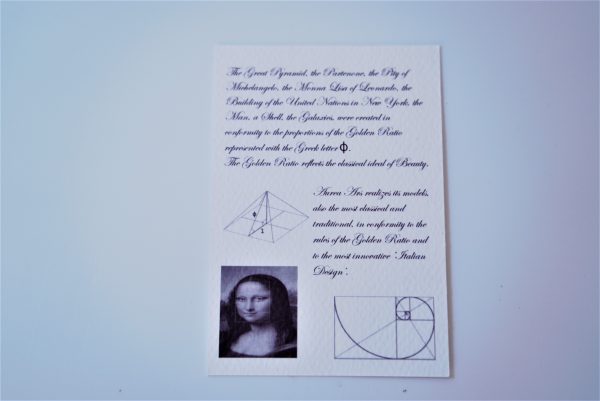 The Great Pyramid, the Partenone, the Pity of
Michelangelo, the Monna Lisa of Leonardo, the
Building of the United Nations in New York, the
Man, a Shell, the Galaxies, were created in
conformity to the proportions of the Golden Ratio
represented with the Greek letter ϕ.
The Golden Ratio reflects the classical ideal of Beauty.
Aurea Ars realizes its models,
also the most classical and
traditional, in conformity to the
rules of the Golden Ratio and
to the most innovative "Italian
Design".
ϕ
1